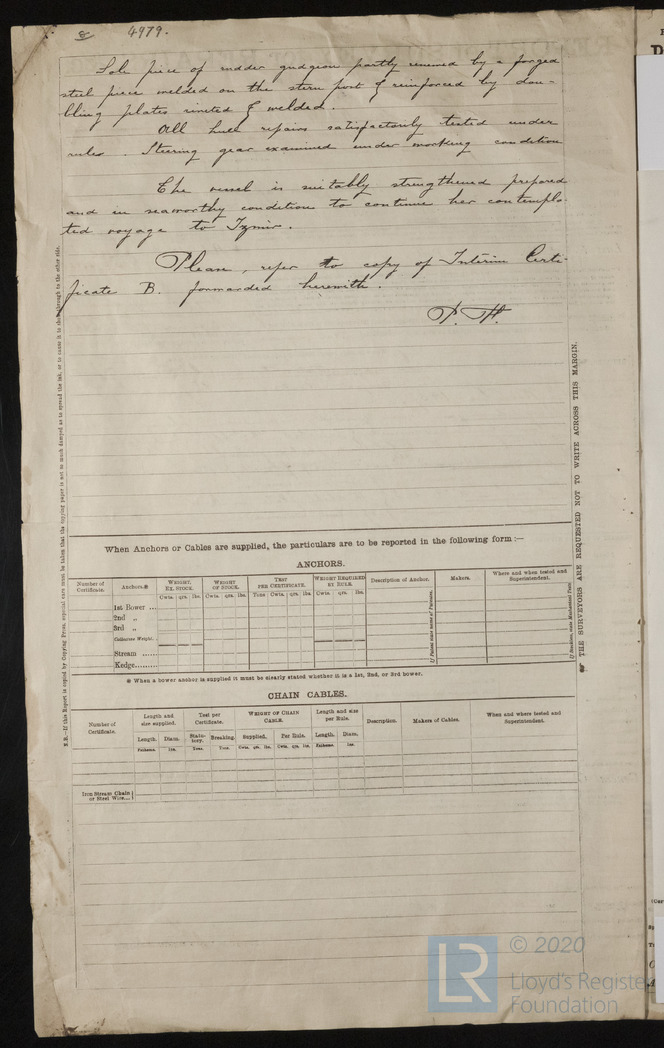 8 4979.
Sole piece of rudder gudgeon partly renewed by a forged
steel piece welded on the stern post & reinforced by dou-
bling plates riveted & welded.
All hull repairs satisfactorily tested under
rules. Steering gear examined under working condition
The vessel is suitably strengthened prepared
and in seaworthy condition to continue her contempla-
ted voyage to Izmir.
Please, refer to copy of Interim Certi-
ficate B. forwarded herewith.
P. H.
N.B.—If this Report is copied by Copying Press, especial care must be taken that the copying paper is not so much damped as to spread the ink, or to cause it to show through to the other side.
THE SURVEYORS ARE REQUESTED NOT TO WRITE ACROSS THIS MARGIN.
When Anchors or Cables are supplied, the particulars are to be reported in the following form :—
ANCHORS.
Number of Certificate. Anchors.* WEIGHT. EX. STOCK. WEIGHT OF STOCK. TEST PER CERTIFICATE. WEIGHT REQUIRED BY RULE. Description of Anchor. Makers. Where and when tested and Superintendent.
Cwts. qrs. lbs. Cwts. qrs. lbs. Tons Cwts. qrs. lbs. Cwts. qrs. lbs.
1st Bower ...
2nd „
3rd „
Collective Weight.
Stream ......
Kedge.........
If Patent state name of Patentee.
* When a bower anchor is supplied it must be clearly stated whether it is a 1st, 2nd, or 3rd bower.
CHAIN CABLES.
Number of Certificate. Length and size supplied. Test per Certificate. WEIGHT OF CHAIN CABLE. Length and size per Rule. Description. Makers of Cables. When and where tested and Superintendent.
Length. Diam. Statu-tory. Breaking. Supplied. Per Rule. Length. Diam.
Fathoms. Ins. Tons. Tons. Cwts. qrs. lbs. Cwts. qrs. lbs. Fathoms. Ins.
Iron Stream Chain
or Steel Wire...
LR © 2020
Lloyd's Register
Foundation